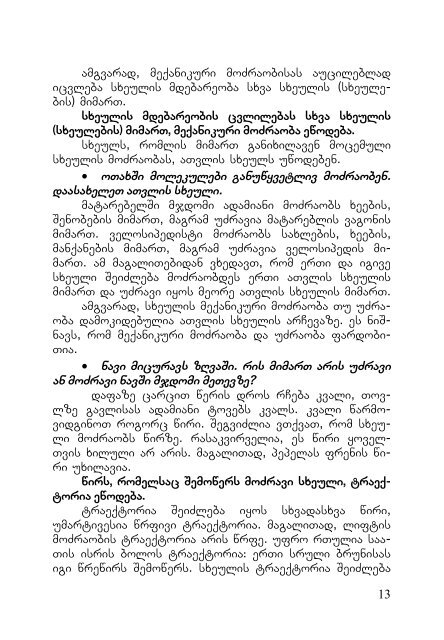 ამგვარად, მექანიკური მოძრაობისას აუცილებლად
იცვლება სხეულის მდებარეობა სხვა სხეულის (სხეულე-
ბის) მიმართ.
სხეულის მდებარეობის ცვლილებას სხვა სხეულის
(სხეულების) მიმართ, მექანიკური მოძრაობა ეწოდება.
სხეულს, რომლის მიმართ განიხილავენ მოცემული
სხეულის მოძრაობას, ათვლის სხეულს უწოდებენ.
• ოთახში მოლეკულები განუწყვეტლივ მოძრაობენ.
დაასახელეთ ათვლის სხეული.
მატარებელში მჯდომი ადამიანი მოძრაობს ხეების,
შენობების მიმართ, მაგრამ უძრავია მატარებლის ვაგონის
მიმართ. ველოსიპედისტი მოძრაობს სახლების, ხეების,
მანქანების მიმართ, მაგრამ უძრავია ველოსიპედის მი-
მართ. ამ მაგალითებიდან ვხედავთ, რომ ერთი და იგივე
სხეული შეიძლება მოძრაობდეს ერთი ათვლის სხეულის
მიმართ და უძრავი იყოს მეორე ათვლის სხეულის მიმართ.
ამგვარად, სხეულის მექანიკური მოძრაობა თუ უძრა-
ობა დამოკიდებულია ათვლის სხეულის არჩევაზე. ეს ნიშ-
ნავს, რომ მექანიკური მოძრაობა და უძრაობა ფარდობი-
თია.
• ნავი მიცურავს ზღვაში. რის მიმართ არის უძრავი
ან მოძრავი ნავში მჯდომი მეთევზე?
დაფაზე ცარცით წერის დროს რჩება კვალი, თოვ-
ლზე გავლისას ადამიანი ტოვებს კვალს. კვალი წარმო-
ვიდგინოთ როგორც წირი. შეგვიძლია ვთქვათ, რომ სხეუ-
ლი მოძრაობს წირზე. რასაკვირველია, ეს წირი ყოველ-
თვის ხილული არ არის. მაგალითად, პეპელას ფრენის წი-
რი უხილავია.
წირს, რომელსაც შემოწერს მოძრავი სხეული, ტრაექ-
ტორია ეწოდება.
ტრაექტორია შეიძლება იყოს სხვადასხვა წირი,
უმარტივესია წრფივი ტრაექტორია. მაგალითად, ლიფტის
მოძრაობის ტრაექტორია არის წრფე. უფრო რთულია საა-
თის ისრის ბოლოს ტრაექტორია: ერთი სრული ბრუნისას
იგი წრეწირს შემოწერს. სხეულის ტრაექტორია შეიძლება
13